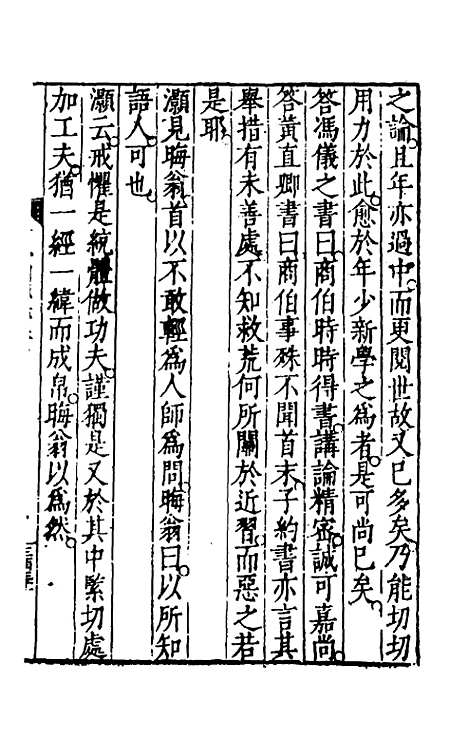 之論且年亦過中而更閱世故又已多矣乃能切切
用力於此愈於年少新學之爲者是可尚已矣
答馮儀之書曰商伯時時得書講論精密誠可嘉尚
答黃直卿書曰商伯事殊不聞首末子約書亦言其
舉措有未善處不知救荒何所關於近習而惡之若
是耶
灝見晦翁首以不敢輕爲人師爲問晦翁曰以所知
語人可也
灝云戒懼是統體做功夫謹獨是又於其中緊切處
加工夫猶一經一緯而成帛晦翁以爲然